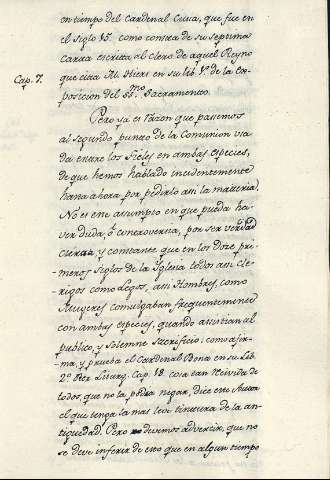 en tiempo del Cardenal Cusa, que fue en
el Siglo 15. como consta de su septima
carta escrita al Clero de aquel Reyno
Cap. 7. que cita Al. Sters en su lib. 1º de la Ex-
posicion del SS.mo Sacramento.
Pero ya es razon que pasemos
al segundo punto de la Comunion usa
da entre los Fieles en ambas especies,
de que hemos hablado incidentemente
hasta ahora por pedirlo asi la materia.
No es este assumpto en que pueda ha-
ver duda, ó controversia, por ser verdad
cierta, y constante que en los doze pri-
meros Siglos de la Iglesia todos asi Cle-
rigos como Legos, asi Hombres, como
Mugeres comulgaban frequentemente
con ambas especies, quando asistian al
publico, y solemne Sacrificio: como afir-
ma, y prueba el Cardenal Bona en su Lib.
2º Rer. Liturg. Cap. 18. cosa tan recivida de
todos, que no la podra negar, dice este
el que tenga la mas leve tintura de la an-
tiguedad. Pero devemos advertir, que no
se deve inferir de esto que en algun tiempo